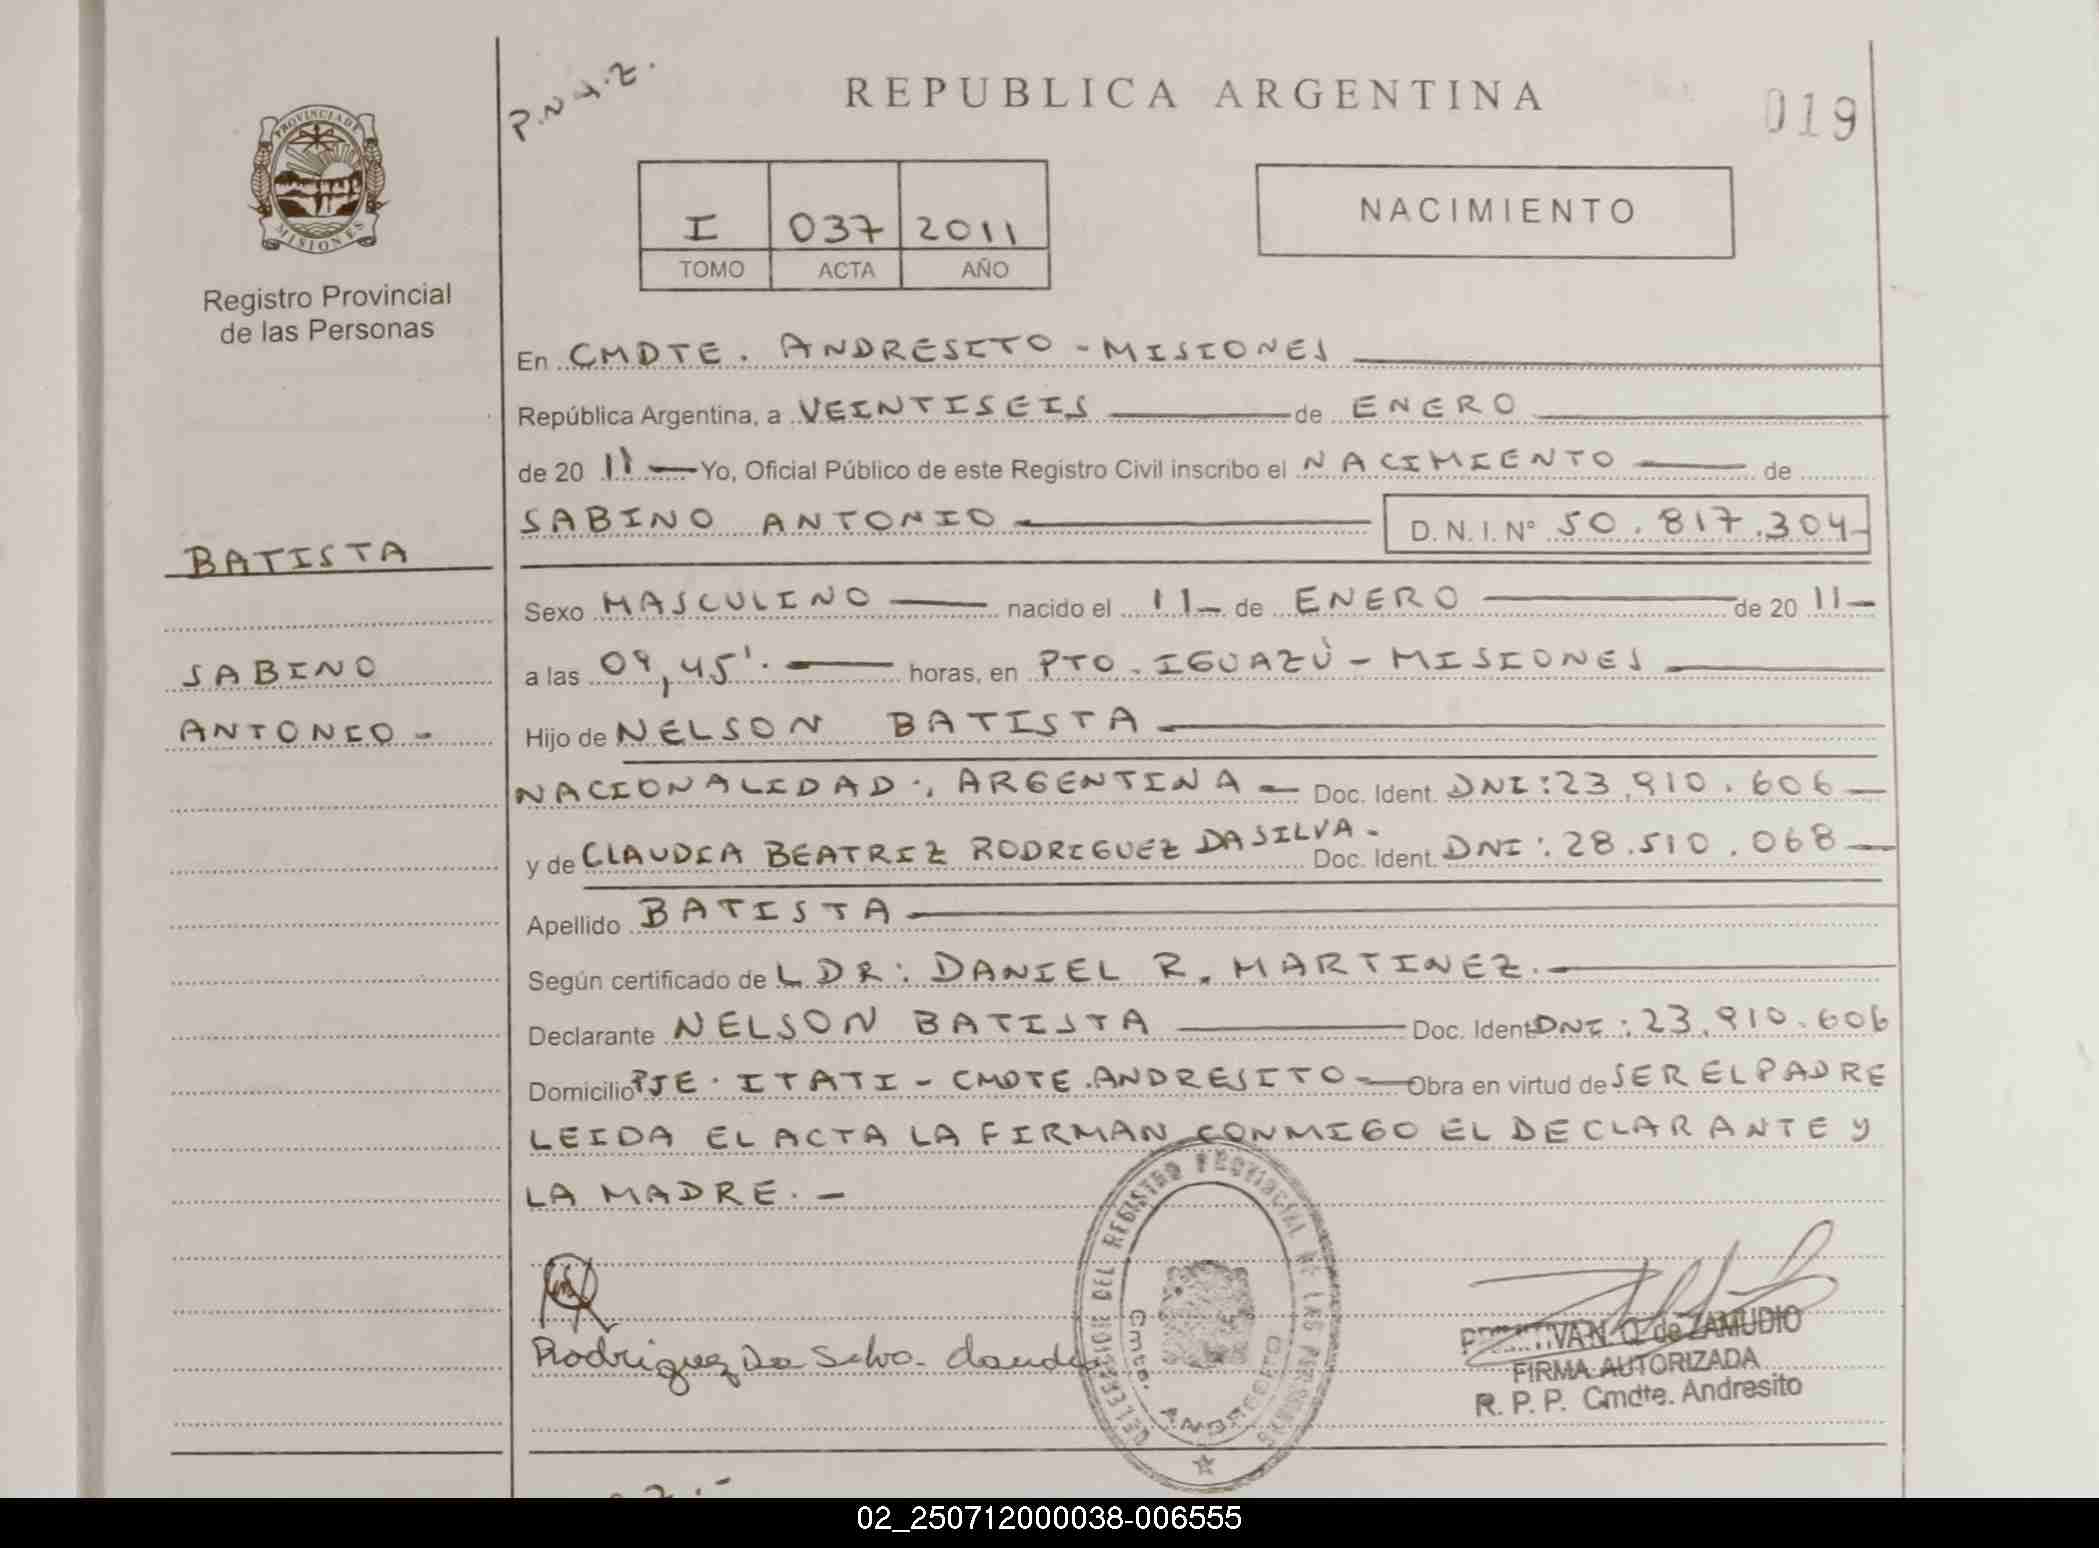 P.N.A.Z.
REPUBLICA ARGENTINA
019
PROVINCIA DE
MISIONES
Registro Provincial
de las Personas
I 037 2011
TOMO ACTA AÑO
NACIMIENTO
En CMDTE. ANDRESITO - MISIONES
República Argentina, a VEINTISEIS de ENERO
de 20 11 Yo, Oficial Público de este Registro Civil inscribo el NACIMIENTO de
SABINO ANTONIO D.N.I. Nº 50.817.304
BATISTA
SABINO
ANTONIO -
Sexo MASCULINO nacido el 11 de ENERO de 20 11
a las 09,45'. horas, en PTO. IGUAZÚ - MISIONES
Hijo de NELSON BATISTA
NACIONALIDAD: ARGENTINA Doc. Ident. DNI: 23.910.606
y de CLAUDIA BEATRIZ RODRIGUEZ DA SILVA. Doc. Ident. DNI: 28.510.068
Apellido BATISTA
Según certificado de L DR: DANIEL R. MARTINEZ.
Declarante NELSON BATISTA Doc. Ident DNI: 23.910.606
Domicilio PJE. ITATI - CMDTE. ANDRESITO Obra en virtud de SER EL PADRE
LEIDA EL ACTA LA FIRMAN CONMIGO EL DECLARANTE Y
LA MADRE. -
Rodriguez Da Silva Claudia
DELEGACION DEL REGISTRO PROVINCIAL DE LAS PERSONAS
Cmte. ANDRESITO
N. O. de ZAMUDIO
FIRMA AUTORIZADA
R. P. P. Cmdte. Andresito
02_250712000038-006555